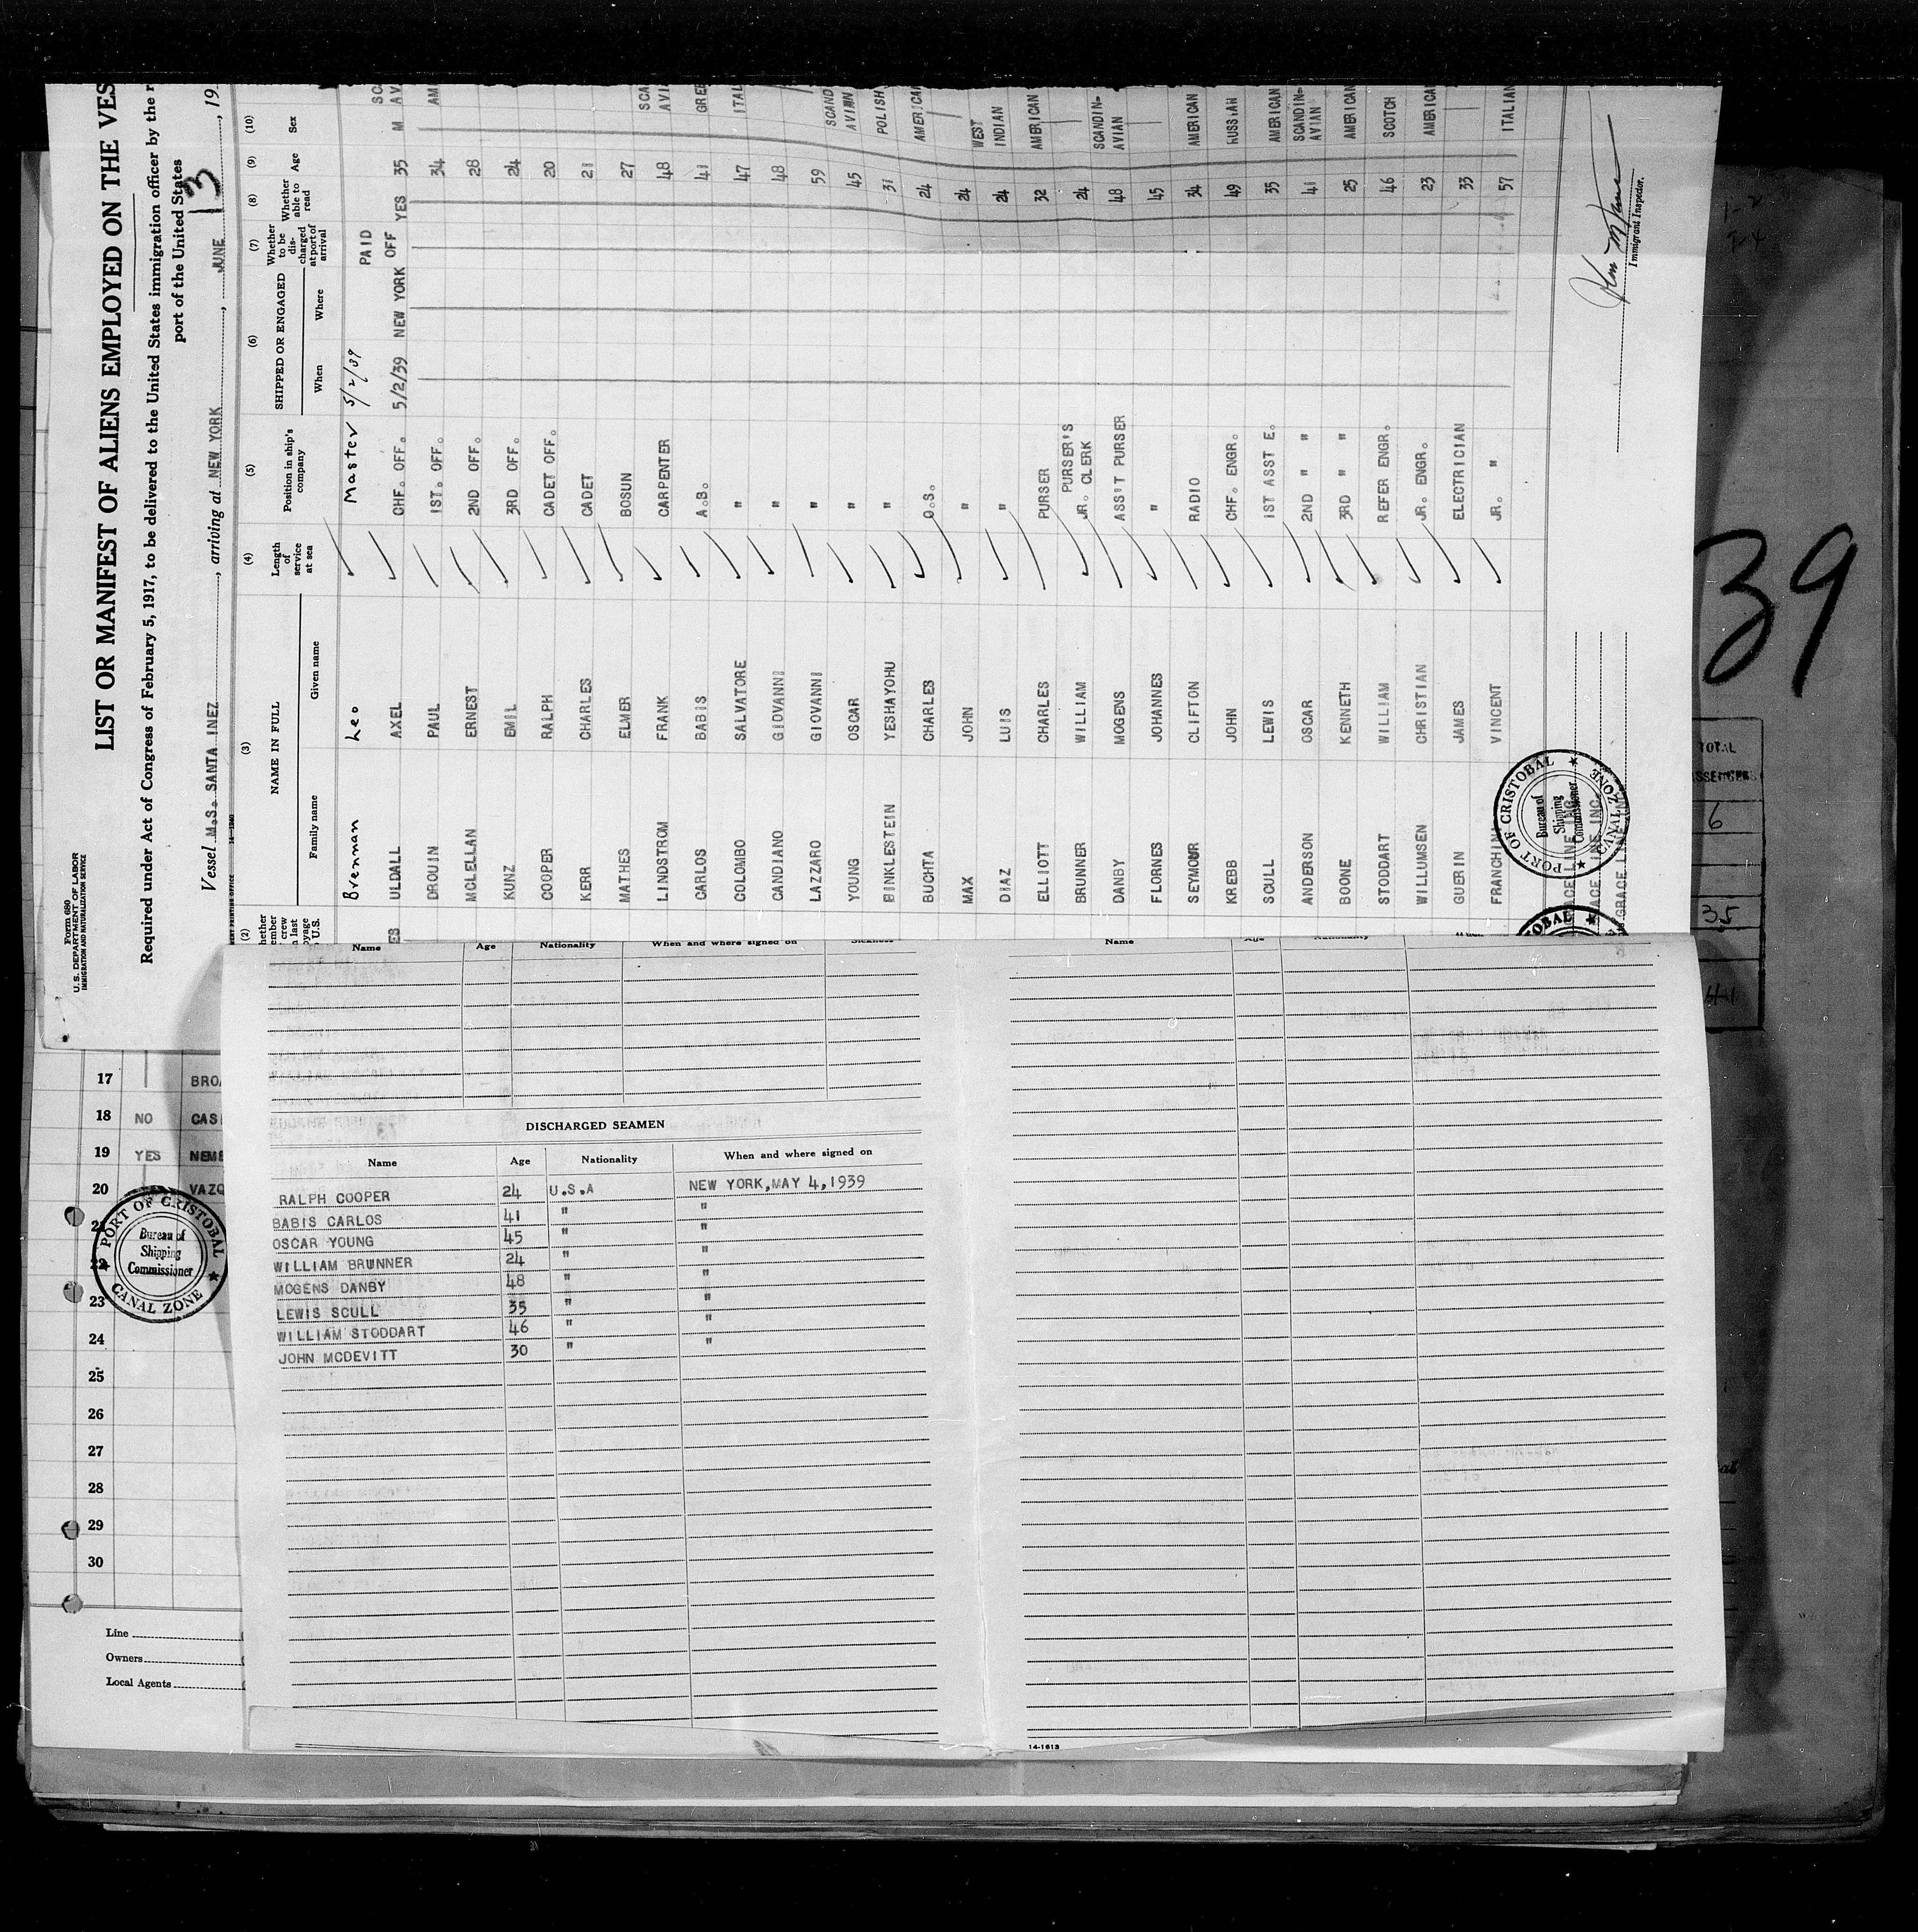 Form 680
U. S. DEPARTMENT OF LABOR
IMMIGRATION AND NATURALIZATION SERVICE
LIST OR MANIFEST OF ALIENS EMPLOYED ON THE VES
Required under Act of Congress of February 5, 1917, to be delivered to the United States immigration officer by the r
port of the United States
Vessel M.S. SANTA INEZ, arriving at NEW YORK, JUNE 13, 19
(2) (3) (4) (5) (6) (7) (8) (9) (10)
NAME IN FULL
Family name Given name
Length of service at sea
Position in ship's company
SHIPPED OR ENGAGED
When Where
Whether to be discharged at port of arrival
Whether able to read
Age
Sex
Brennan Leo Master 5/2/39
PAID
ULDALL AXEL CHF. OFF. 5/2/39 NEW YORK OFF YES 35 M
DROUIN PAUL 1ST. OFF. 34
MCLELLAN ERNEST 2ND OFF. 28
KUNZ EMIL 3RD OFF. 24
COOPER RALPH CADET OFF. 20
KERR CHARLES CADET 21
MATHES ELMER BOSUN 27
LINDSTROM FRANK CARPENTER 48
CARLOS BABIS A.B. 41
COLOMBO SALVATORE " 47
CANDIANO GIOVANNI " 48
LAZZARO GIOVANNI " 59
YOUNG OSCAR " 45 SCAND AVIAN
BINKLESTEIN YESHAYOHU " 31 POLISH
BUCHTA CHARLES O.S. 24 AMERICAN
MAX JOHN " 24 WEST
DIAZ LUIS " 24 INDIAN
ELLIOTT CHARLES PURSER 32 AMERICAN
BRUNNER WILLIAM PURSER'S JR. CLERK 24
DANBY MOGENS ASS'T PURSER 48 SCANDIN-AVIAN
FLORNES JOHANNES " 45
SEYMOUR CLIFTON RADIO 34 AMERICAN
KREBB JOHN CHF. ENGR. 49 RUSSIAN
SCULL LEWIS 1ST ASST E. 35 AMERICAN
ANDERSON OSCAR 2ND " " 41 SCANDIN-AVIAN
BOONE KENNETH 3RD " " 25 AMERICAN
STODDART WILLIAM REFER ENGR. 46 SCOTCH
WILLUMSEN CHRISTIAN JR. ENGR. 23 AMERICAN
GUERIN JAMES ELECTRICIAN 33
FRANCHINI VINCENT JR. " 57 ITALIAN
Immigrant Inspector.
PORT OF CRISTOBAL
Bureau of
Shipping
Commissioner
CANAL ZONE
GRACE LINE INC.
39
TOTAL
6
35
41
Name Age Nationality When and where signed on
Name
DISCHARGED SEAMEN
Name Age Nationality When and where signed on
RALPH COOPER 24 U.S.A NEW YORK,MAY 4,1939
BABIS CARLOS 41 " "
OSCAR YOUNG 45 " "
WILLIAM BRUNNER 24 " "
MOGENS DANBY 48 " "
LEWIS SCULL 35 " "
WILLIAM STODDART 46 " "
JOHN MCDEVITT 30 " "
14-1613
17 BRO
18 NO CAS
19 YES NEME
20 VAZQ
PORT OF CRISTOBAL
Bureau of
Shipping
Commissioner
CANAL ZONE
23
24
25
26
27
28
29
30
Line
Owners
Local Agents